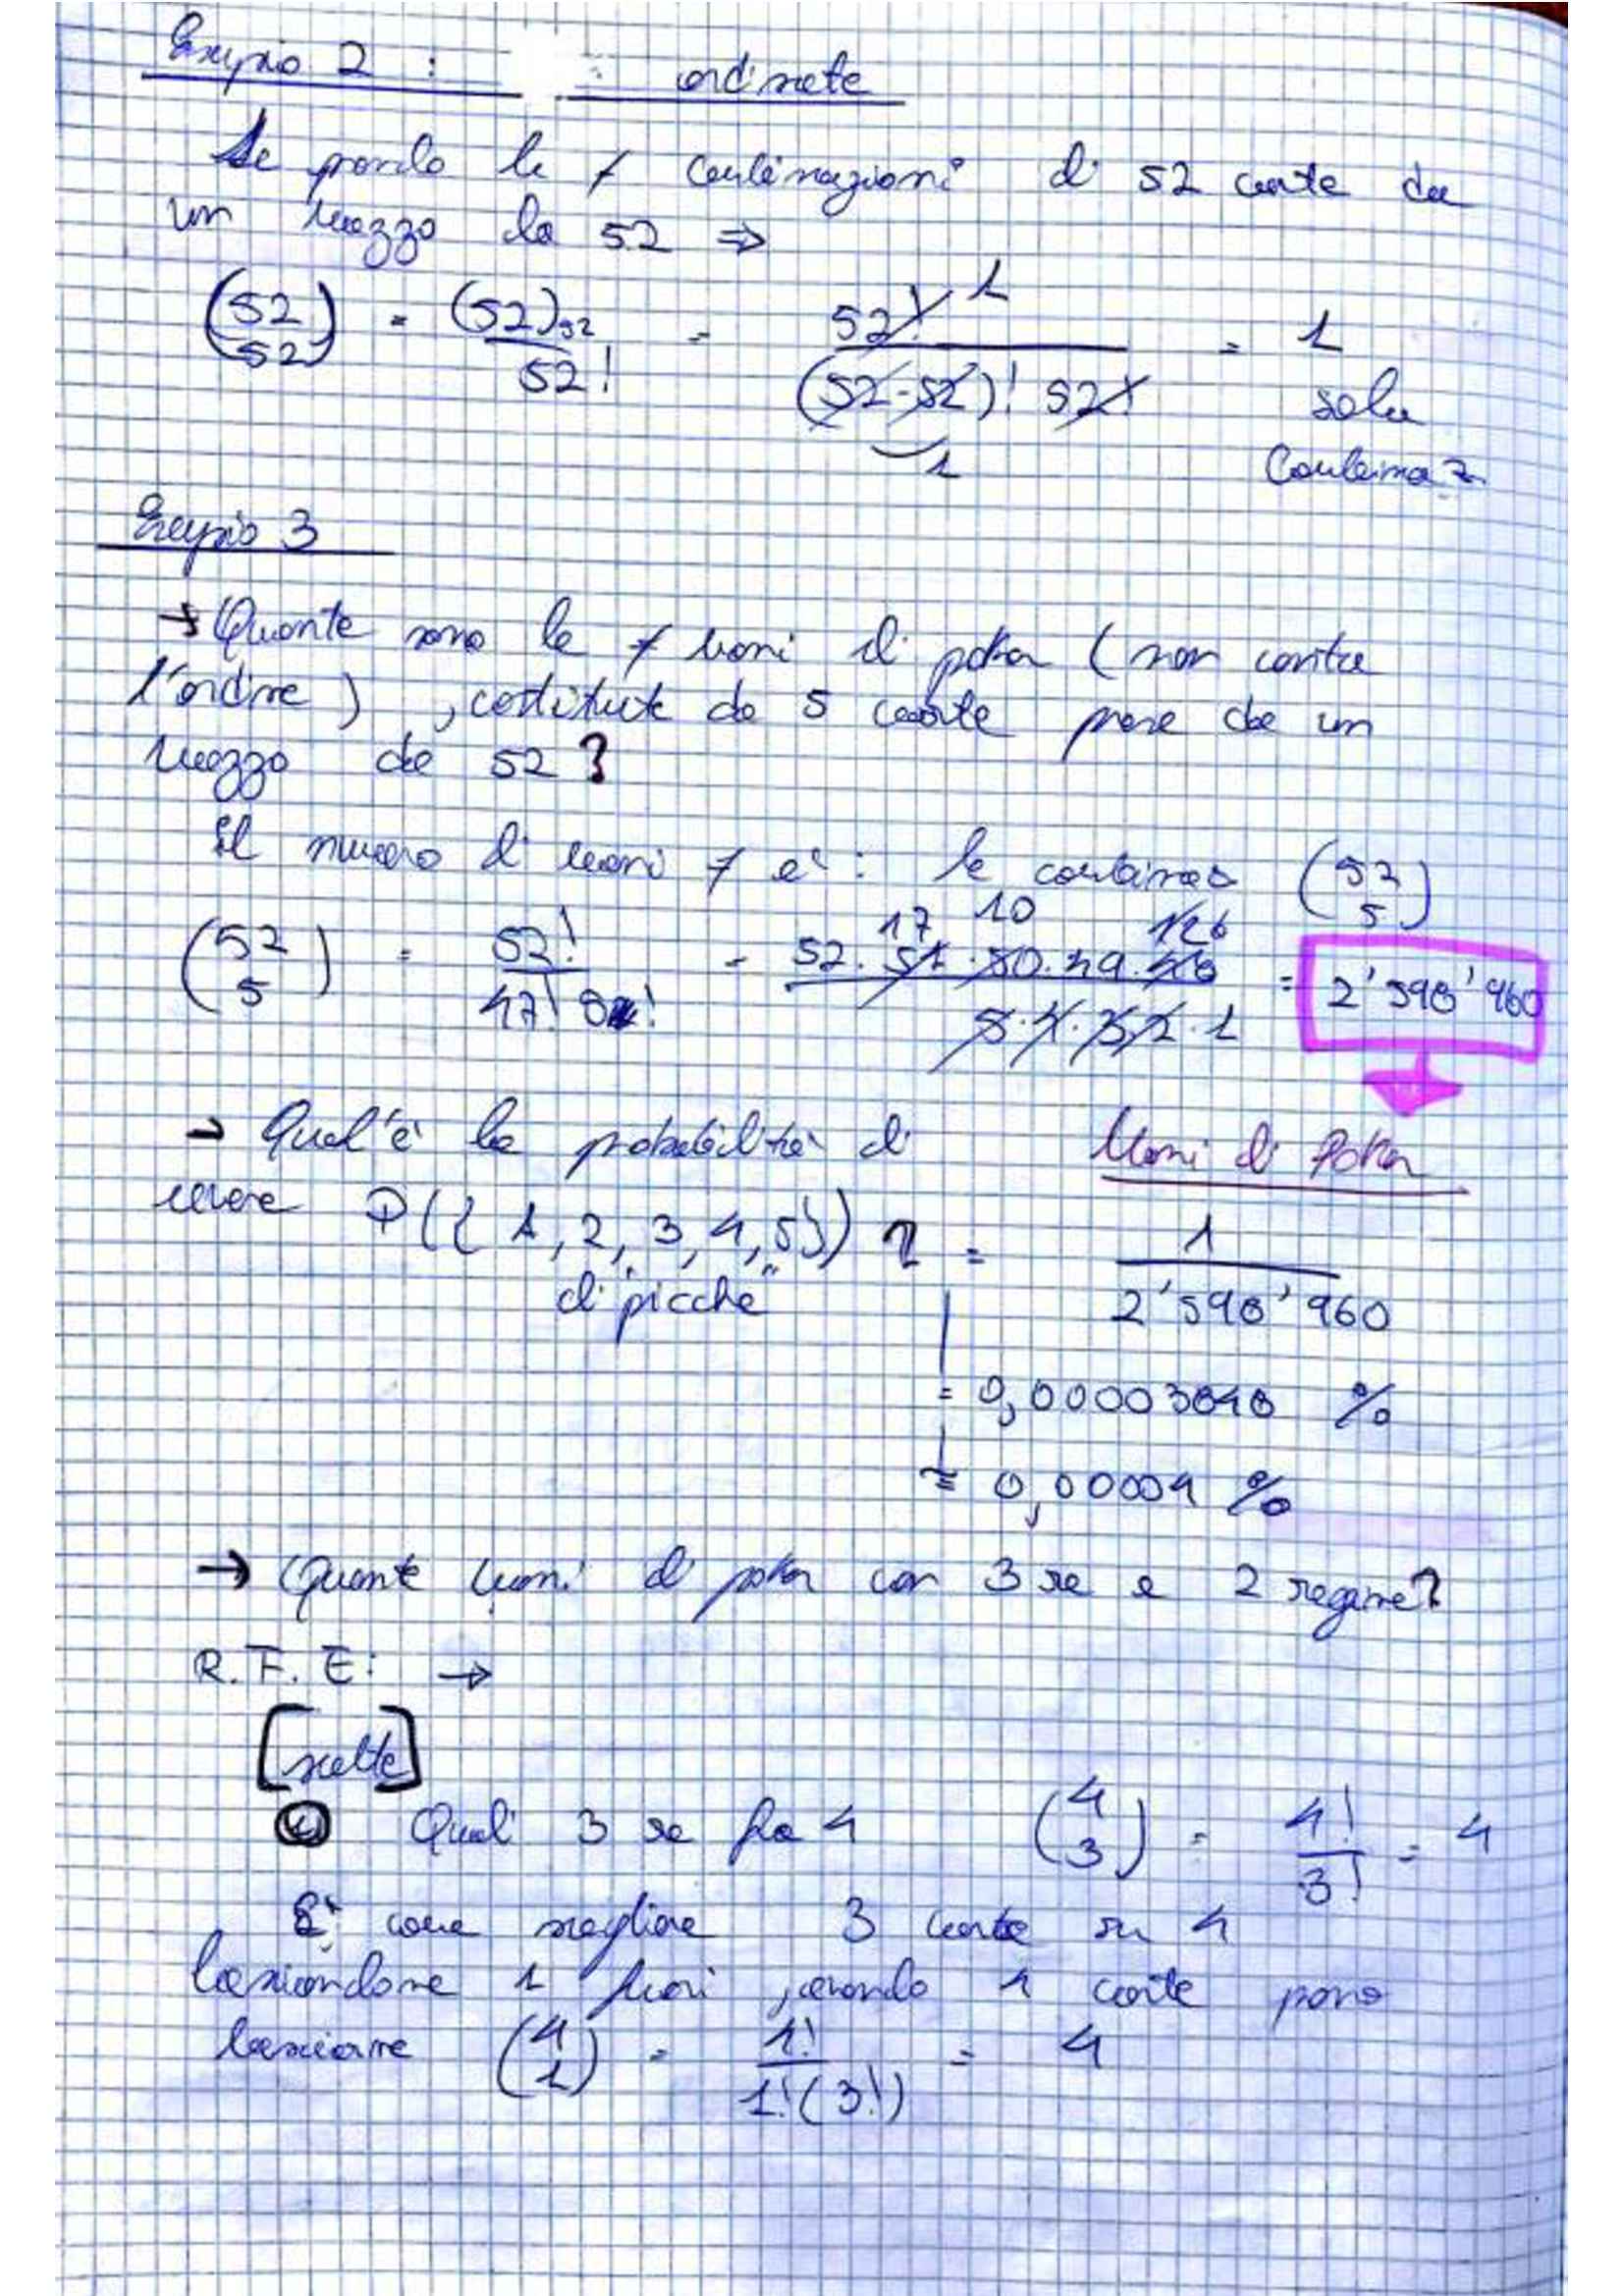 Esempio 2 : ordinate
Se prendo le ≠ combinazioni di 52 carte da
un mazzo da 52 ⇒
(52 52) = (52)52 / 52! = 52! 1 / (52-52)! 52! = 1
1
sola
combinaz.
Esempio 3
→ Quante sono le ≠ mani di poker (non conta
l'ordine) , costituite da 5 carte prese da un
mazzo da 52 ?
Il numero di mani ≠ è : le combinaz (52 5)
17 10 126
(52 5) = 52! / 47! 5! = 52 . 51 . 50 . 49 . 48 / 5 . 4 . 3 . 2 . 1 = 2'598'960
→ Qual'è la probabilità di
Mani di Poker
avere P({1, 2, 3, 4, 5}) ? = 1 / 2'598'960
di "picche"
= 0,00003848 %
≈ 0,00004 %
→ Quante mani di poker con 3 re e 2 regine?
R.F.E: →
[scelte]
① Quali 3 re fra 4 (4 3) = 4! / 3! = 4
È come scegliere 3 carte su 4
lasciandone 1 fuori , avendo 4 carte posso
lasciarne (4 1) = 4! / 1!(3!) = 4